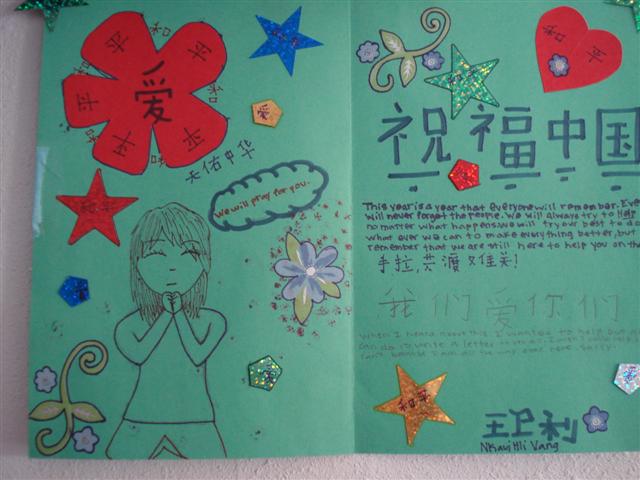 爱
平
平
平
平
平
和
和
和
和
和
天佑中华
we will pray for you.
和平
和
和平
和平
祝福中国
This year is a year that everyone will remember. Eve
will never forget the people. We will always try to Help
no matter what happens. we will try our best to do
what ever we can to make everything better, but
remember that we are still here to help you on the
手拉, 共渡难关!
我们爱你们
When I heard about this I wanted to help but
can do is write a letter to
can't because I am all the way over here. Sorry.
和平
王卫利
Nkauj Hli Vang